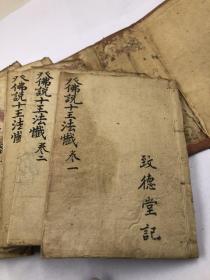 佛說十王法懺 卷一
致德堂記
佛說十王法懺 卷二
佛說十王法懺